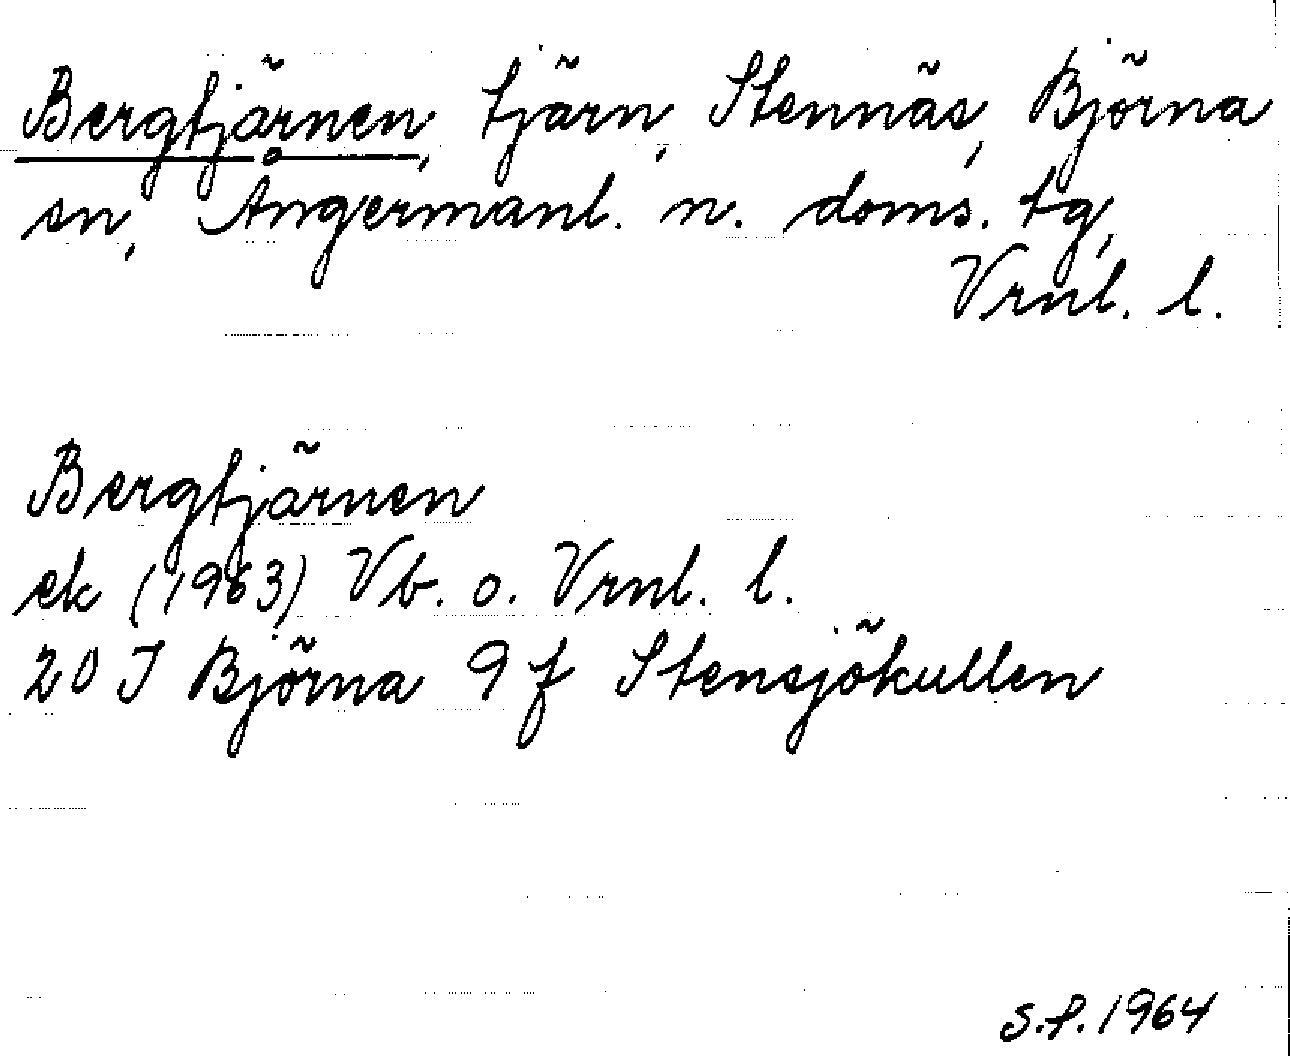 Bergtjärnen, tjärn, Stennäs, Björna
sn, Ångermanl. n. doms. tg,
Vrnl. l.
Bergtjärnen
ek (1963) Vb. o. Vrnl. l.
20 I Björna 9 f Stensjökullen
S.f. 1964